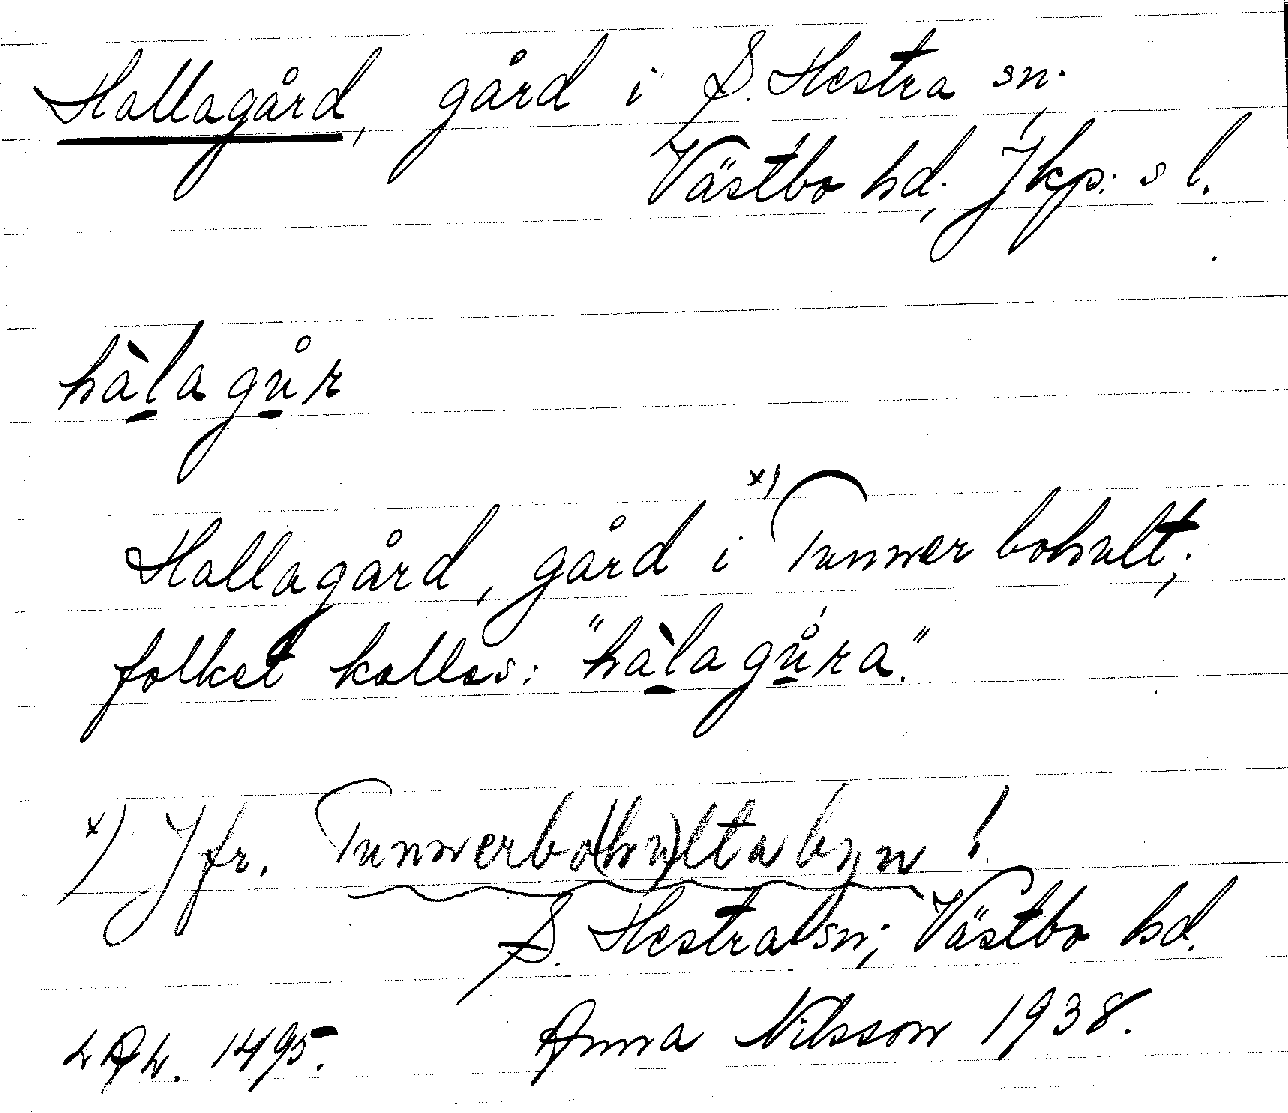 Hallagård, gård i S. Hestra sn.
Västbo hd; Jkp:s l.
hàlagůr
x)
Hallagård, gård i Tunnerbohult;
folket kallas: "hàlagůra".
x) Jfr. Tunnerbo(hu)ltabyn!
S. Hestra sn; Västbo hd.
1495. Anna Nilsson 1938.